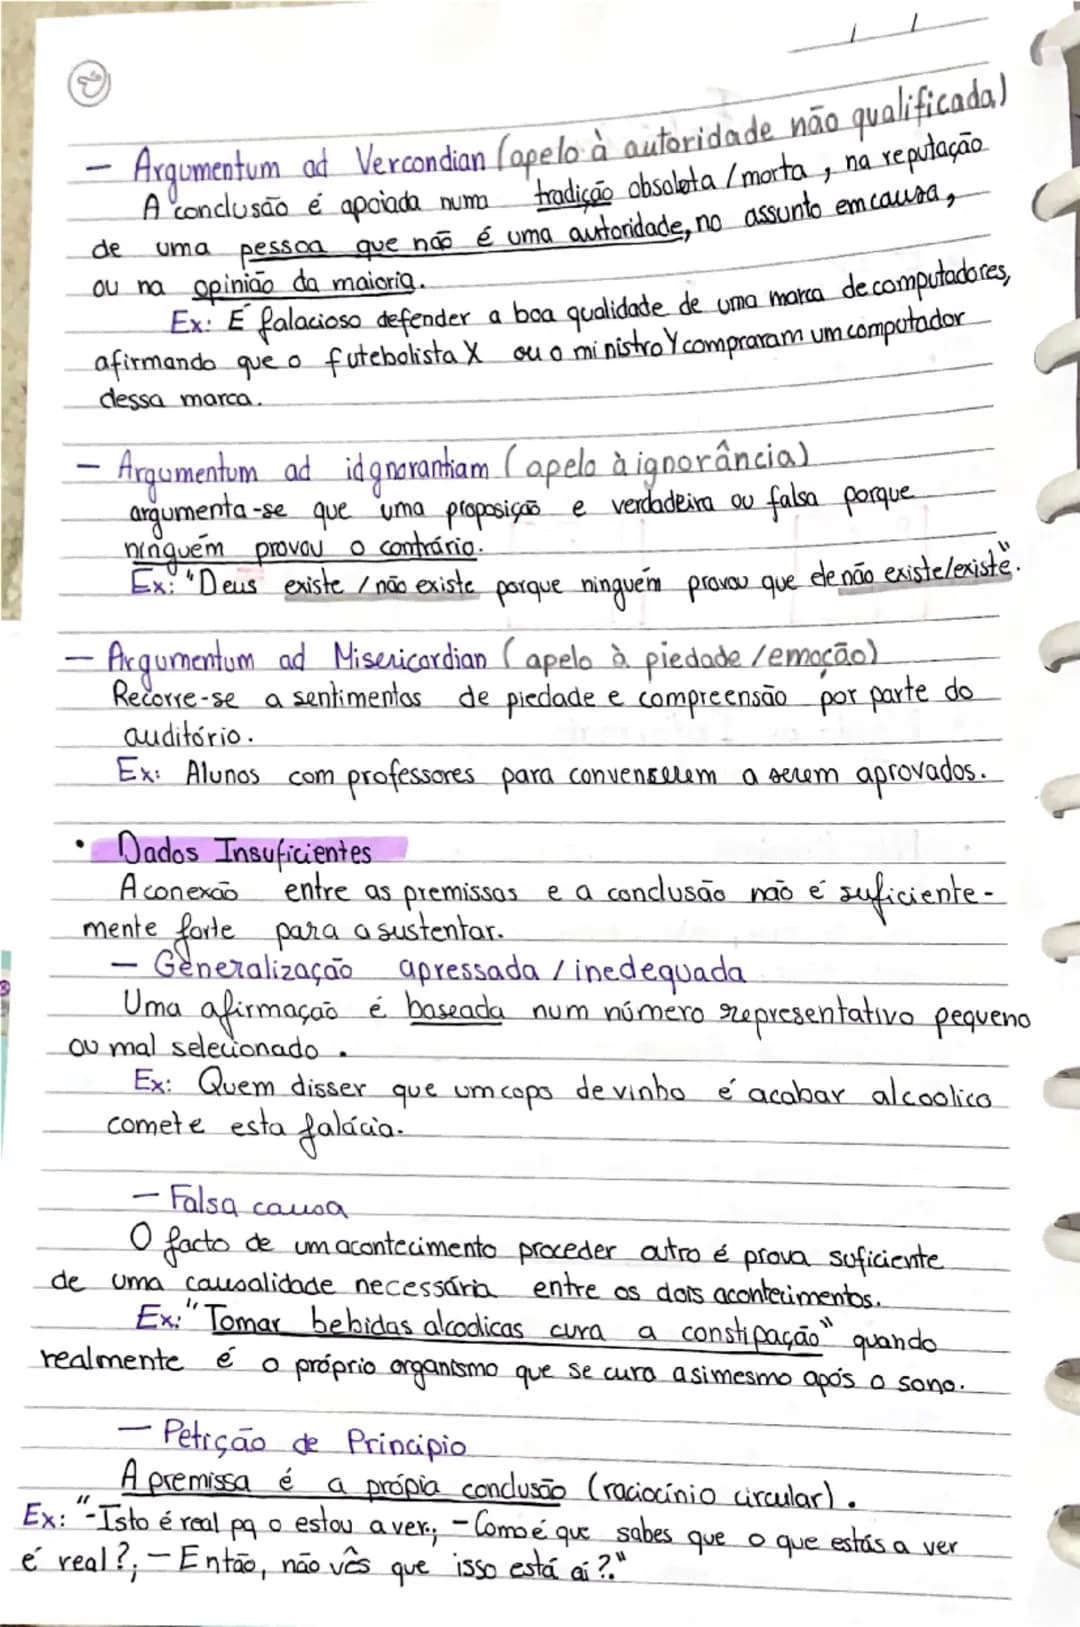 - Argumentum ad Vercondian (apelo à autoridade não qualificada)
A conclusão é apoiada numa tradição obsoleta / morta, na reputação
de uma pessoa que não é uma autoridade, no assunto em causa,
ou na opinião da maioria.
Ex: É falacioso defender a boa qualidade de uma marca de computadores,
afirmando que o futebolista X ou o ministro Y compraram um computador
dessa marca.
- Argumentum ad idgnorantiam (apelo à ignorância)
argumenta-se que uma proposição e verdadeira ou falsa porque
ninguém provou o contrário.
Ex: "Deus existe / não existe porque ninguém provou que ele não existe/existe".
- Argumentum ad Misericordian (apelo à piedade / emoção)
Recorre-se a sentimentos de piedade e compreensão por parte do
auditório.
Ex: Alunos com professores para convenserem a serem aprovados.
• Dados Insuficientes
A conexão entre as premissas e a conclusão não é suficiente-
mente forte para a sustentar.
- Generalização apressada / inedequada
Uma afirmação é baseada num número representativo pequeno
ou mal selecionado.
Ex: Quem disser que um copo de vinho é acabar alcoolico
comete esta falácia.
- Falsa causa
O facto de um acontecimento proceder outro é prova suficiente
de uma causalidade necessária entre os dois acontecimentos.
Ex: "Tomar bebidas alcoolicas cura a constipação" quando
realmente é o próprio organismo que se cura a si mesmo após o sono.
- Petição de Principio
A premissa é a própia conclusão (raciocínio circular).
Ex: "- Isto é real pq o estou a ver; - Como é que sabes que o que estás a ver
é real?; - Então, não vês que isso está aí?"